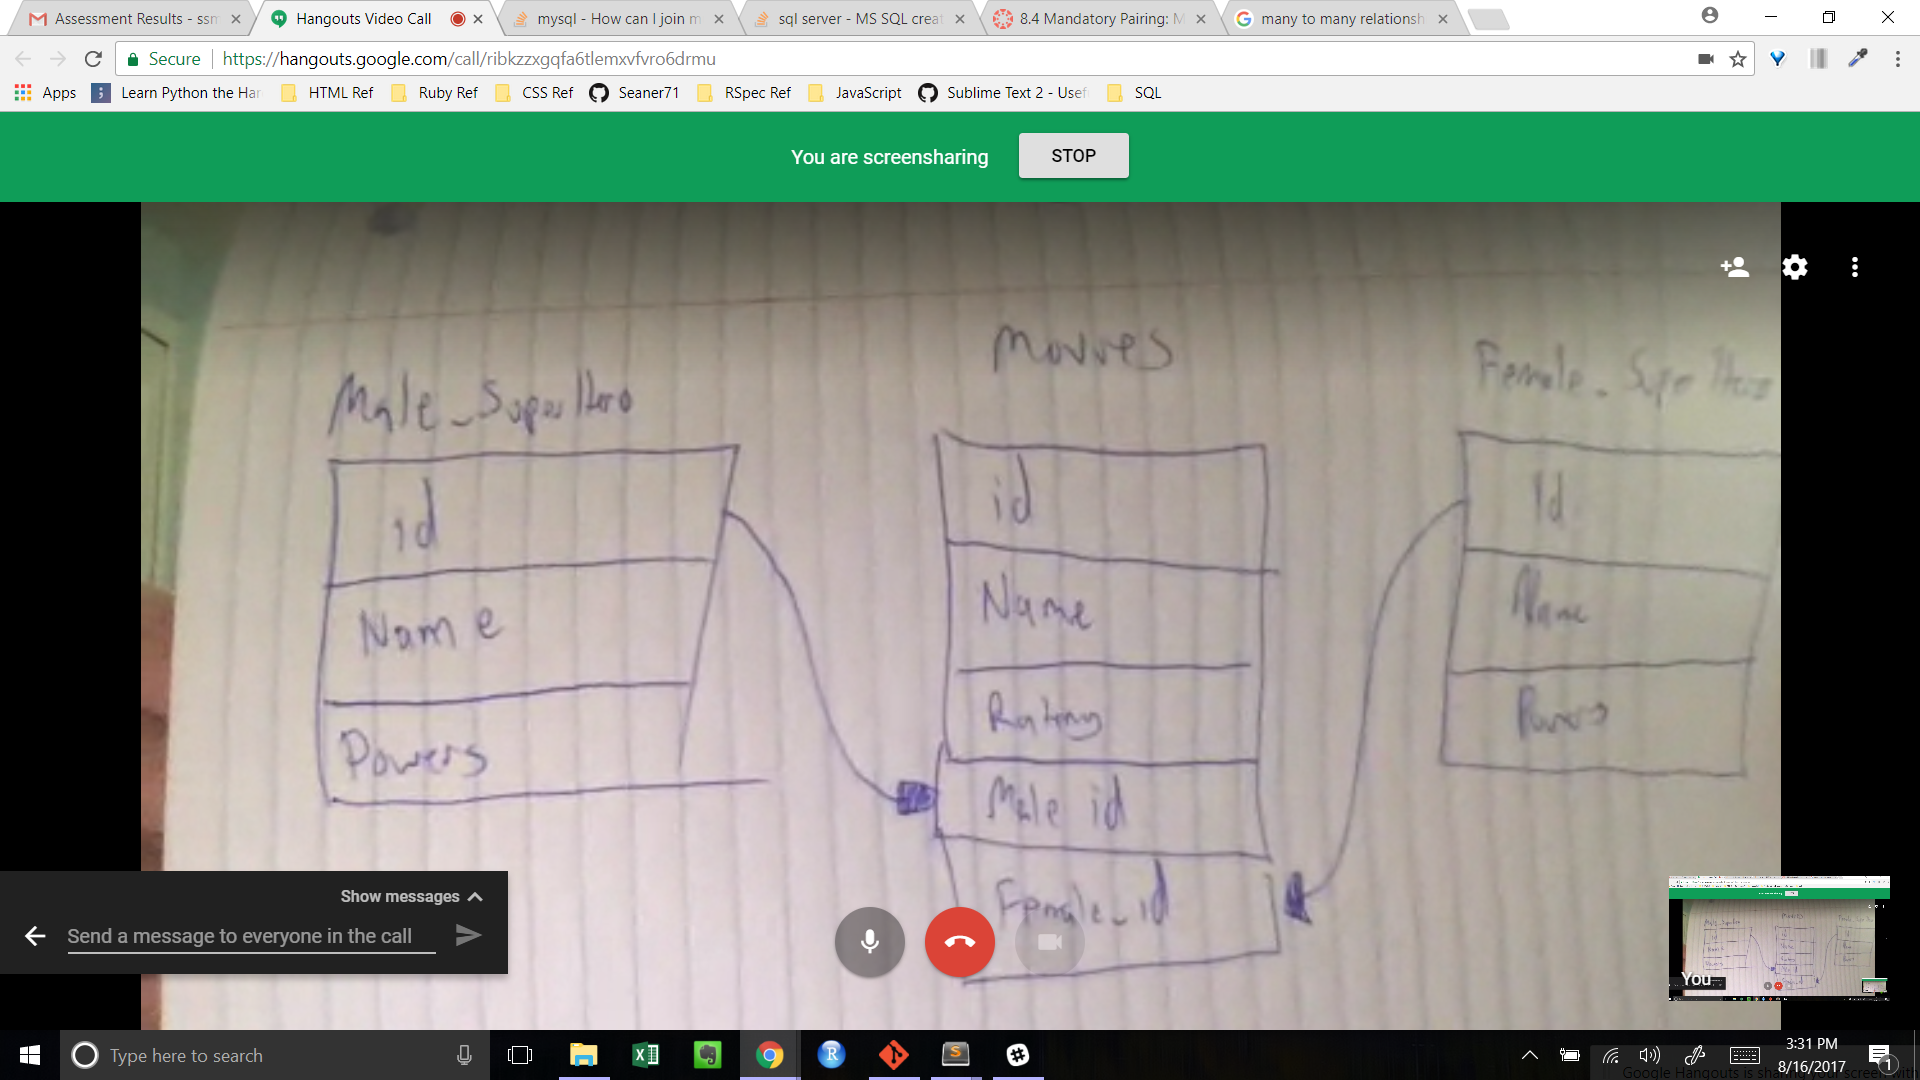 Assessment Results - ssm
Hangouts Video Call
mysql - How can I join m
sql server - MS SQL creat
8.4 Mandatory Pairing: M
many to many relationsh
Secure
https://hangouts.google.com/call/ribkzzxgqfa6tlemxvfvro6drmu
Apps
Learn Python the Har
HTML Ref
Ruby Ref
CSS Ref
Seaner71
RSpec Ref
JavaScript
Sublime Text 2 - Usef
SQL
You are screensharing
STOP
Male_SuperHero
id
Name
Powers
Movies
id
Name
Rating
Male id
Female_id
Female_SuperHero
Id
Name
Powers
Show messages
Send a message to everyone in the call
You
Type here to search
3:31 PM
8/16/2017
1
Google Hangouts is sharing your screen with